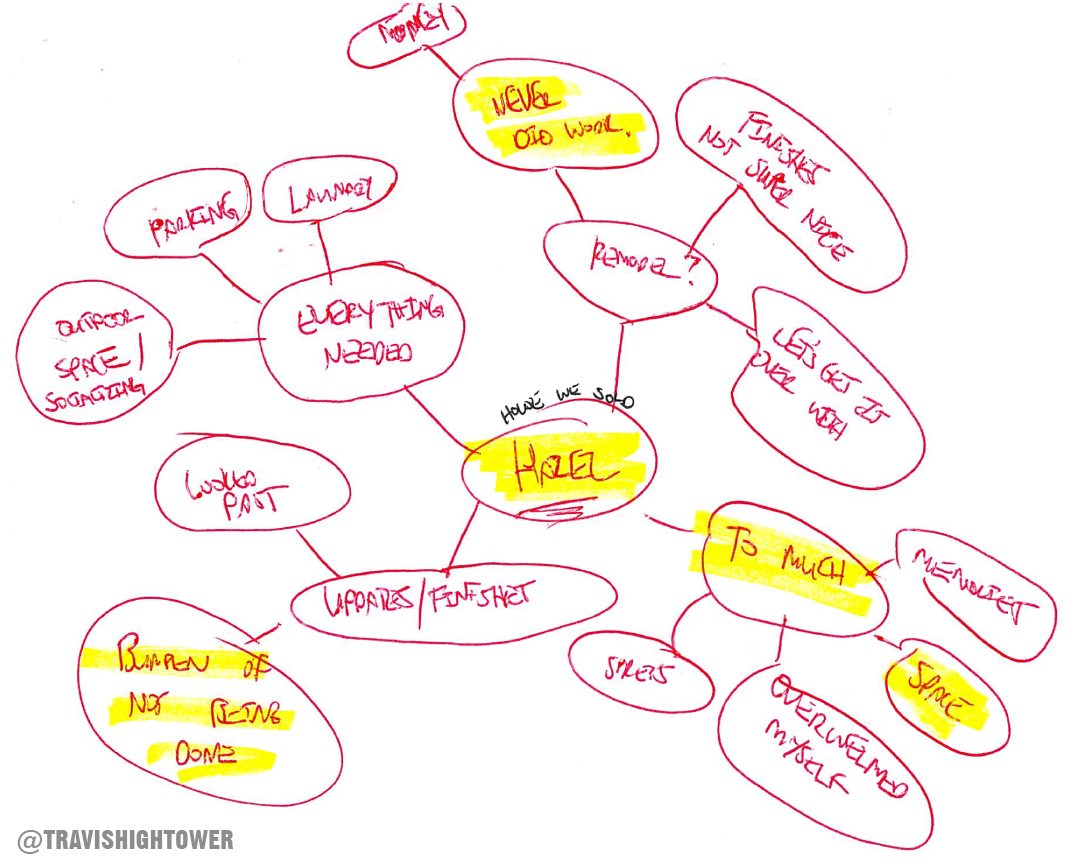 MONEY
NEVER
DID WORK.
FINISHES
NOT SUPER NICE
PARKING
LAUNDRY
REMODEL?
OUTDOOR
SPACE/
SOCIALIZING
EVERYTHING
NEEDED
LET'S GET IT
OVER WITH
HOUSE WE SOLD
HAZEL
LOOKED
PAST
TO MUCH
MEMORIES
UPDATES/FINISHES
BURDEN OF
NOT BEING
DONE
STRESS
SPACE
OVERWELMED
MYSELF
@TRAVISHIGHTOWER